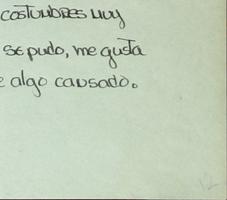 costumbres muy
se pudo, me gusta
e algo causado.
12